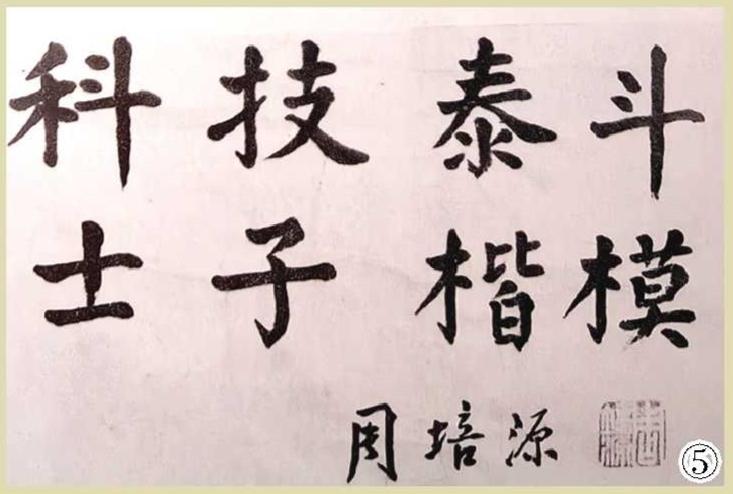 科技泰斗
士子楷模
周培源
⑤